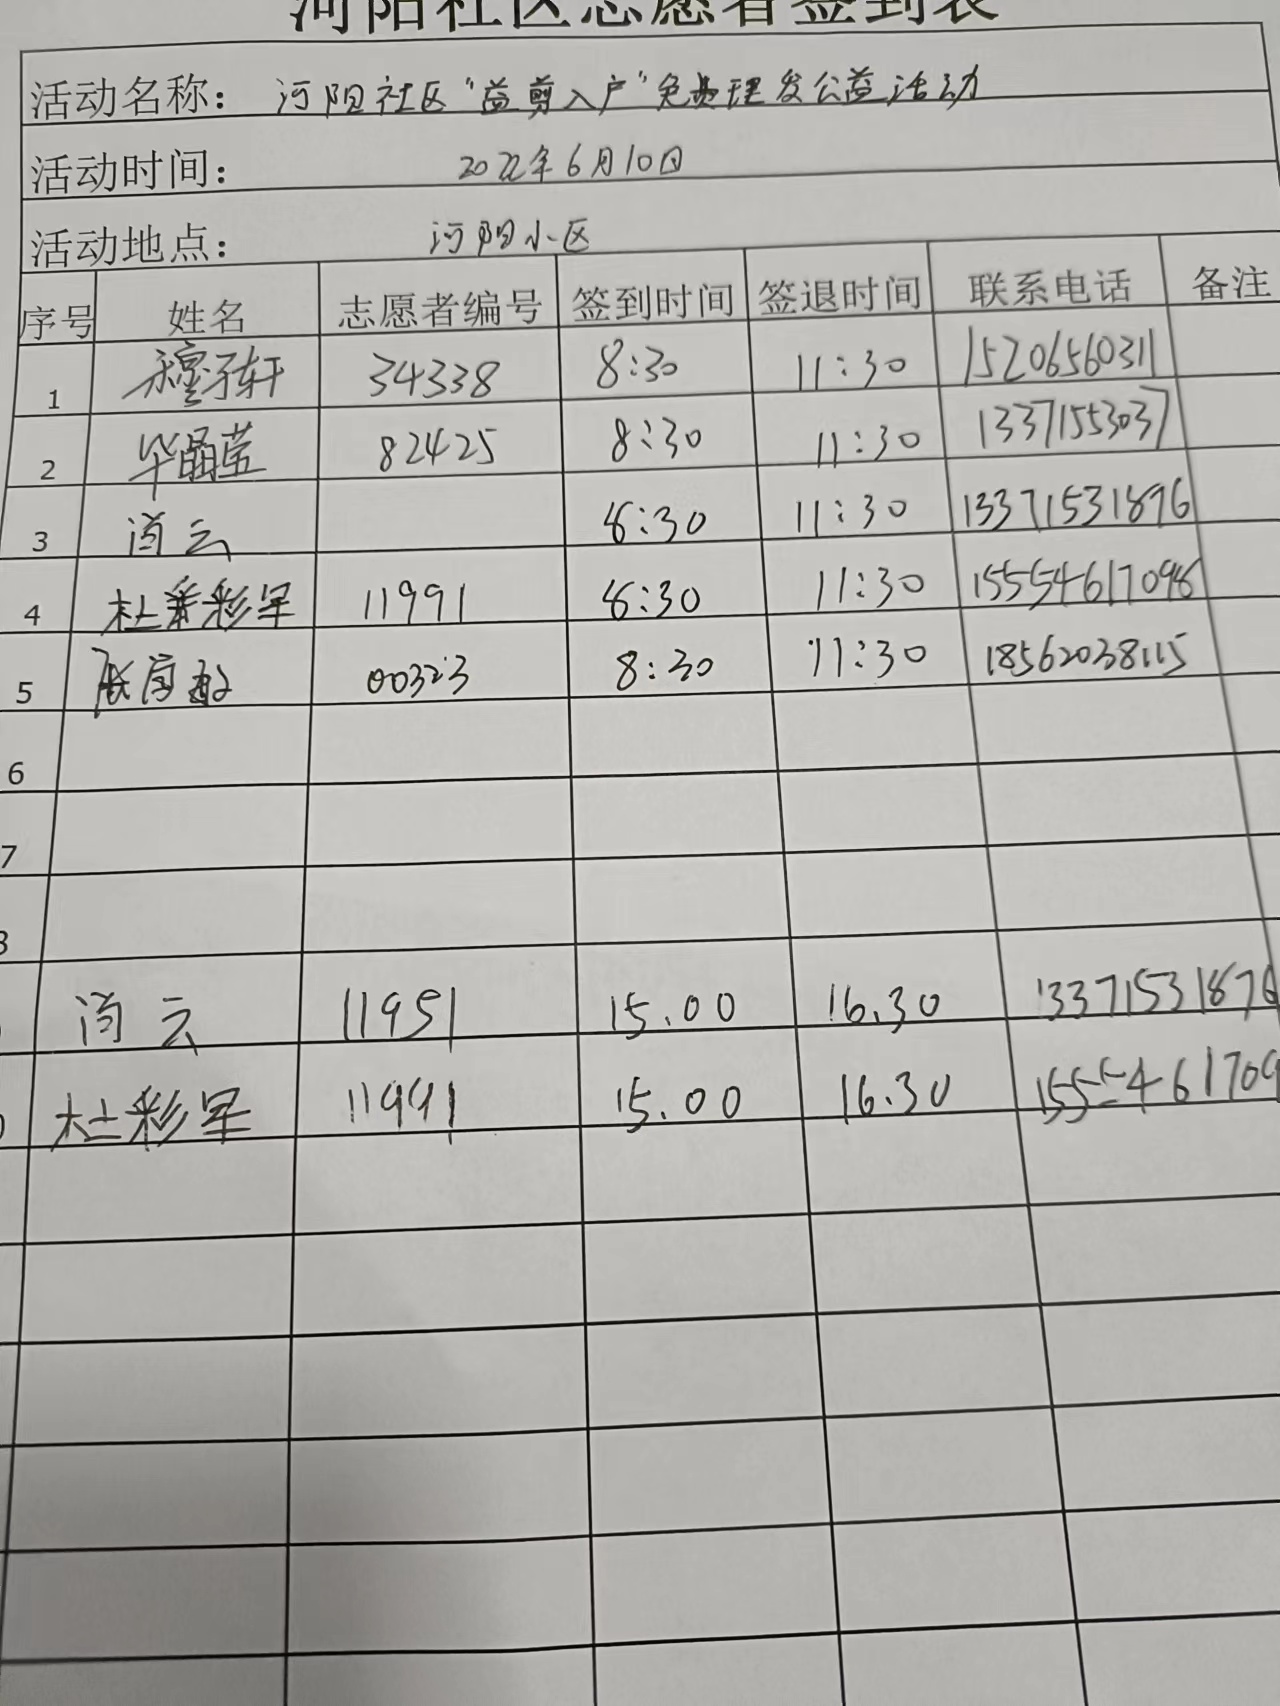 河阳社区志愿者签到表
活动名称： 河阳社区“益剪入户”免费理发公益活动
活动时间： 2022年6月10日
活动地点： 河阳小区
序号 姓名 志愿者编号 签到时间 签退时间 联系电话 备注
1 穆子轩 34338 8:30 11:30 15206560311
2 毕晶莹 82425 8:30 11:30 13371553037
3 尚云 8:30 11:30 13371531876
4 杜彩军 11991 8:30 11:30 15554617098
5 8:30 11:30 18562038115
6
7
8
尚云 11951 15.00 16.30 13371531876
杜彩军 11991 15.00 16.30 1555461709